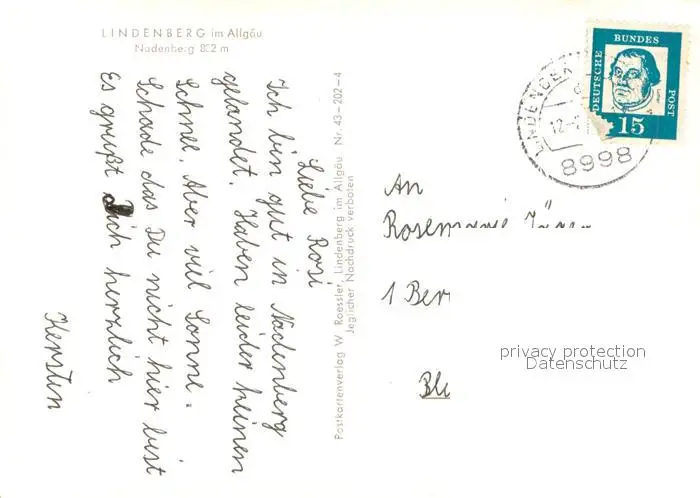 LINDENBERG im Allgäu
Nadenberg 882 m
Liebe Rosi
Ich bin gut in Nadenberg
gelandet. Haben leider keinen
Schnee. Aber viel Sonne.
Schade das Du nicht hier bist
Es grüßt Dich herzlich
Kerstin
Postkartenverlag W. Roessler, Lindenberg im Allgäu Nr. 43-202-4
Jeglicher Nachdruck verboten
DEUTSCHE BUNDES POST
15
8998
An
Rosemarie Jäger
1 Ber
privacy protection
Datenschutz